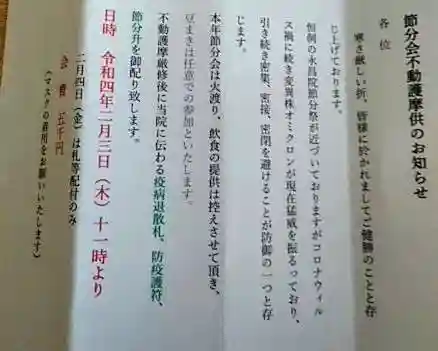 節分会不動護摩供のお知らせ
各位
寒さ厳しい折、皆様に於かれましてご健勝のことと存
じ上げております。
恒例の永昌院節分祭が近づいておりますがコロナウィル
ス禍に続き変異株オミクロンが現在猛威を振るっており、
引き続き密集、密接、密閉を避けることが防御の一つと存
じます。
本年節分会は火渡り、飲食の提供は控えさせて頂き、
豆まきは任意での参加といたします。
不動護摩厳修後に当院に伝わる疫病退散札、防疫護符、
節分升を御配り致します。
日時 令和四年二月三日(木)十一時より
二月四日(金)は札等配付のみ
会費 五千円
(マスクの着用をお願いいたします)